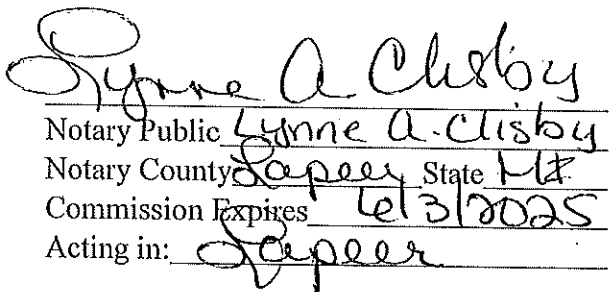 Lynne A Clisby
Notary Public Lynne A. Clisby
Notary County Lapeer State MI
Commission Expires 6/3/2025
Acting in: Lapeer